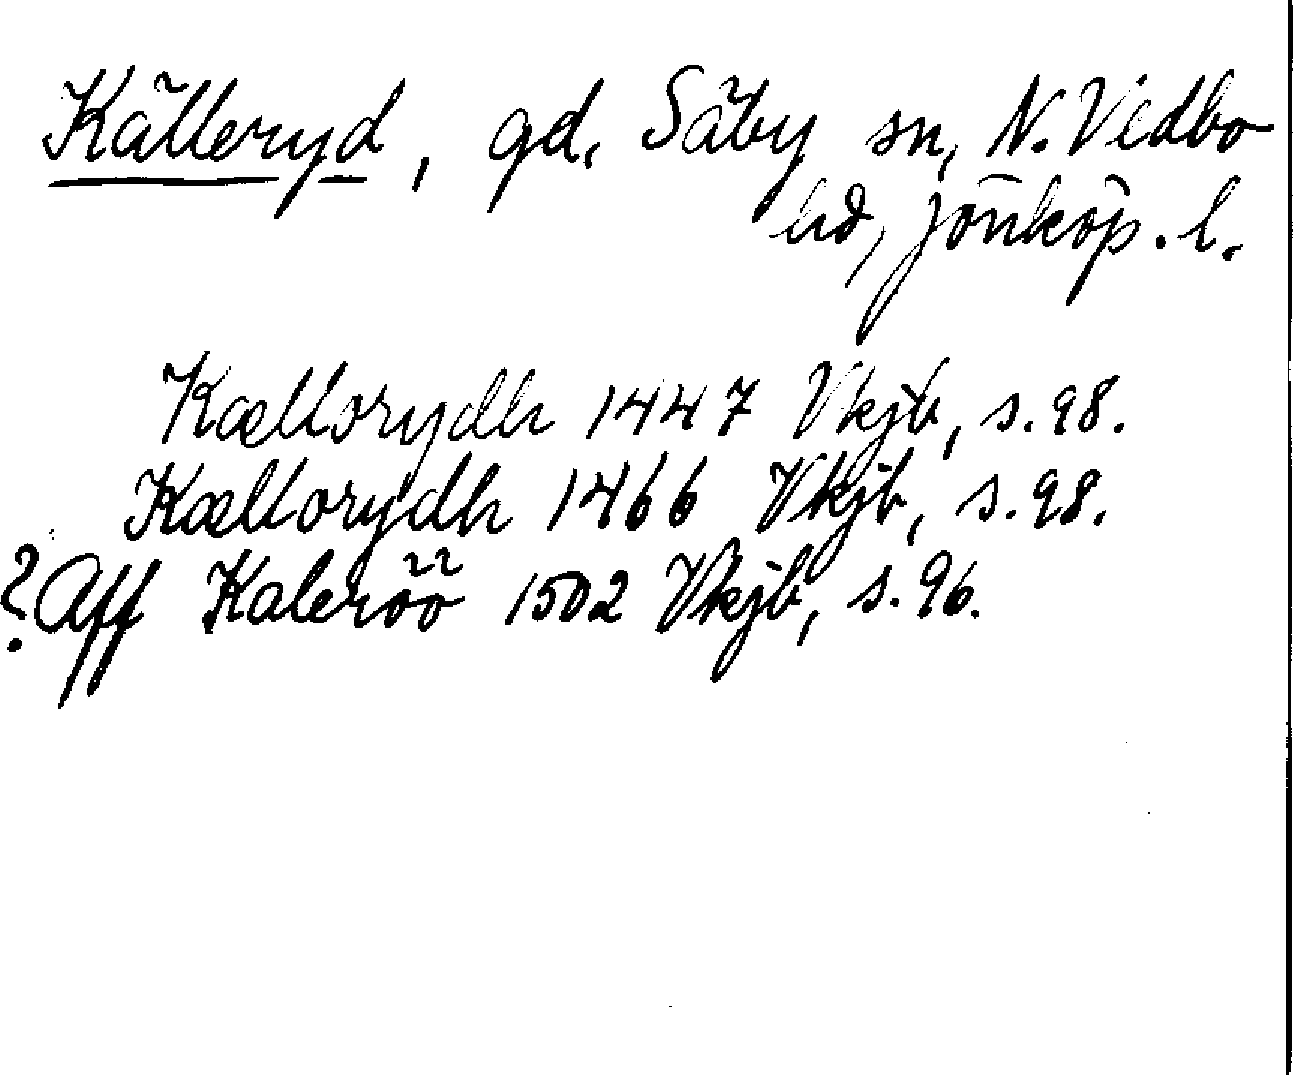 Källeryd, gd, Säby sn, N. Vedbo
hd, Jönköp. l.
Kællorydh 1447 Vkjb, s. 98.
Kællorydh 1466 Vkjb, s. 98.
? Aff Kaleröö 1502 Vkjb, s. 96.